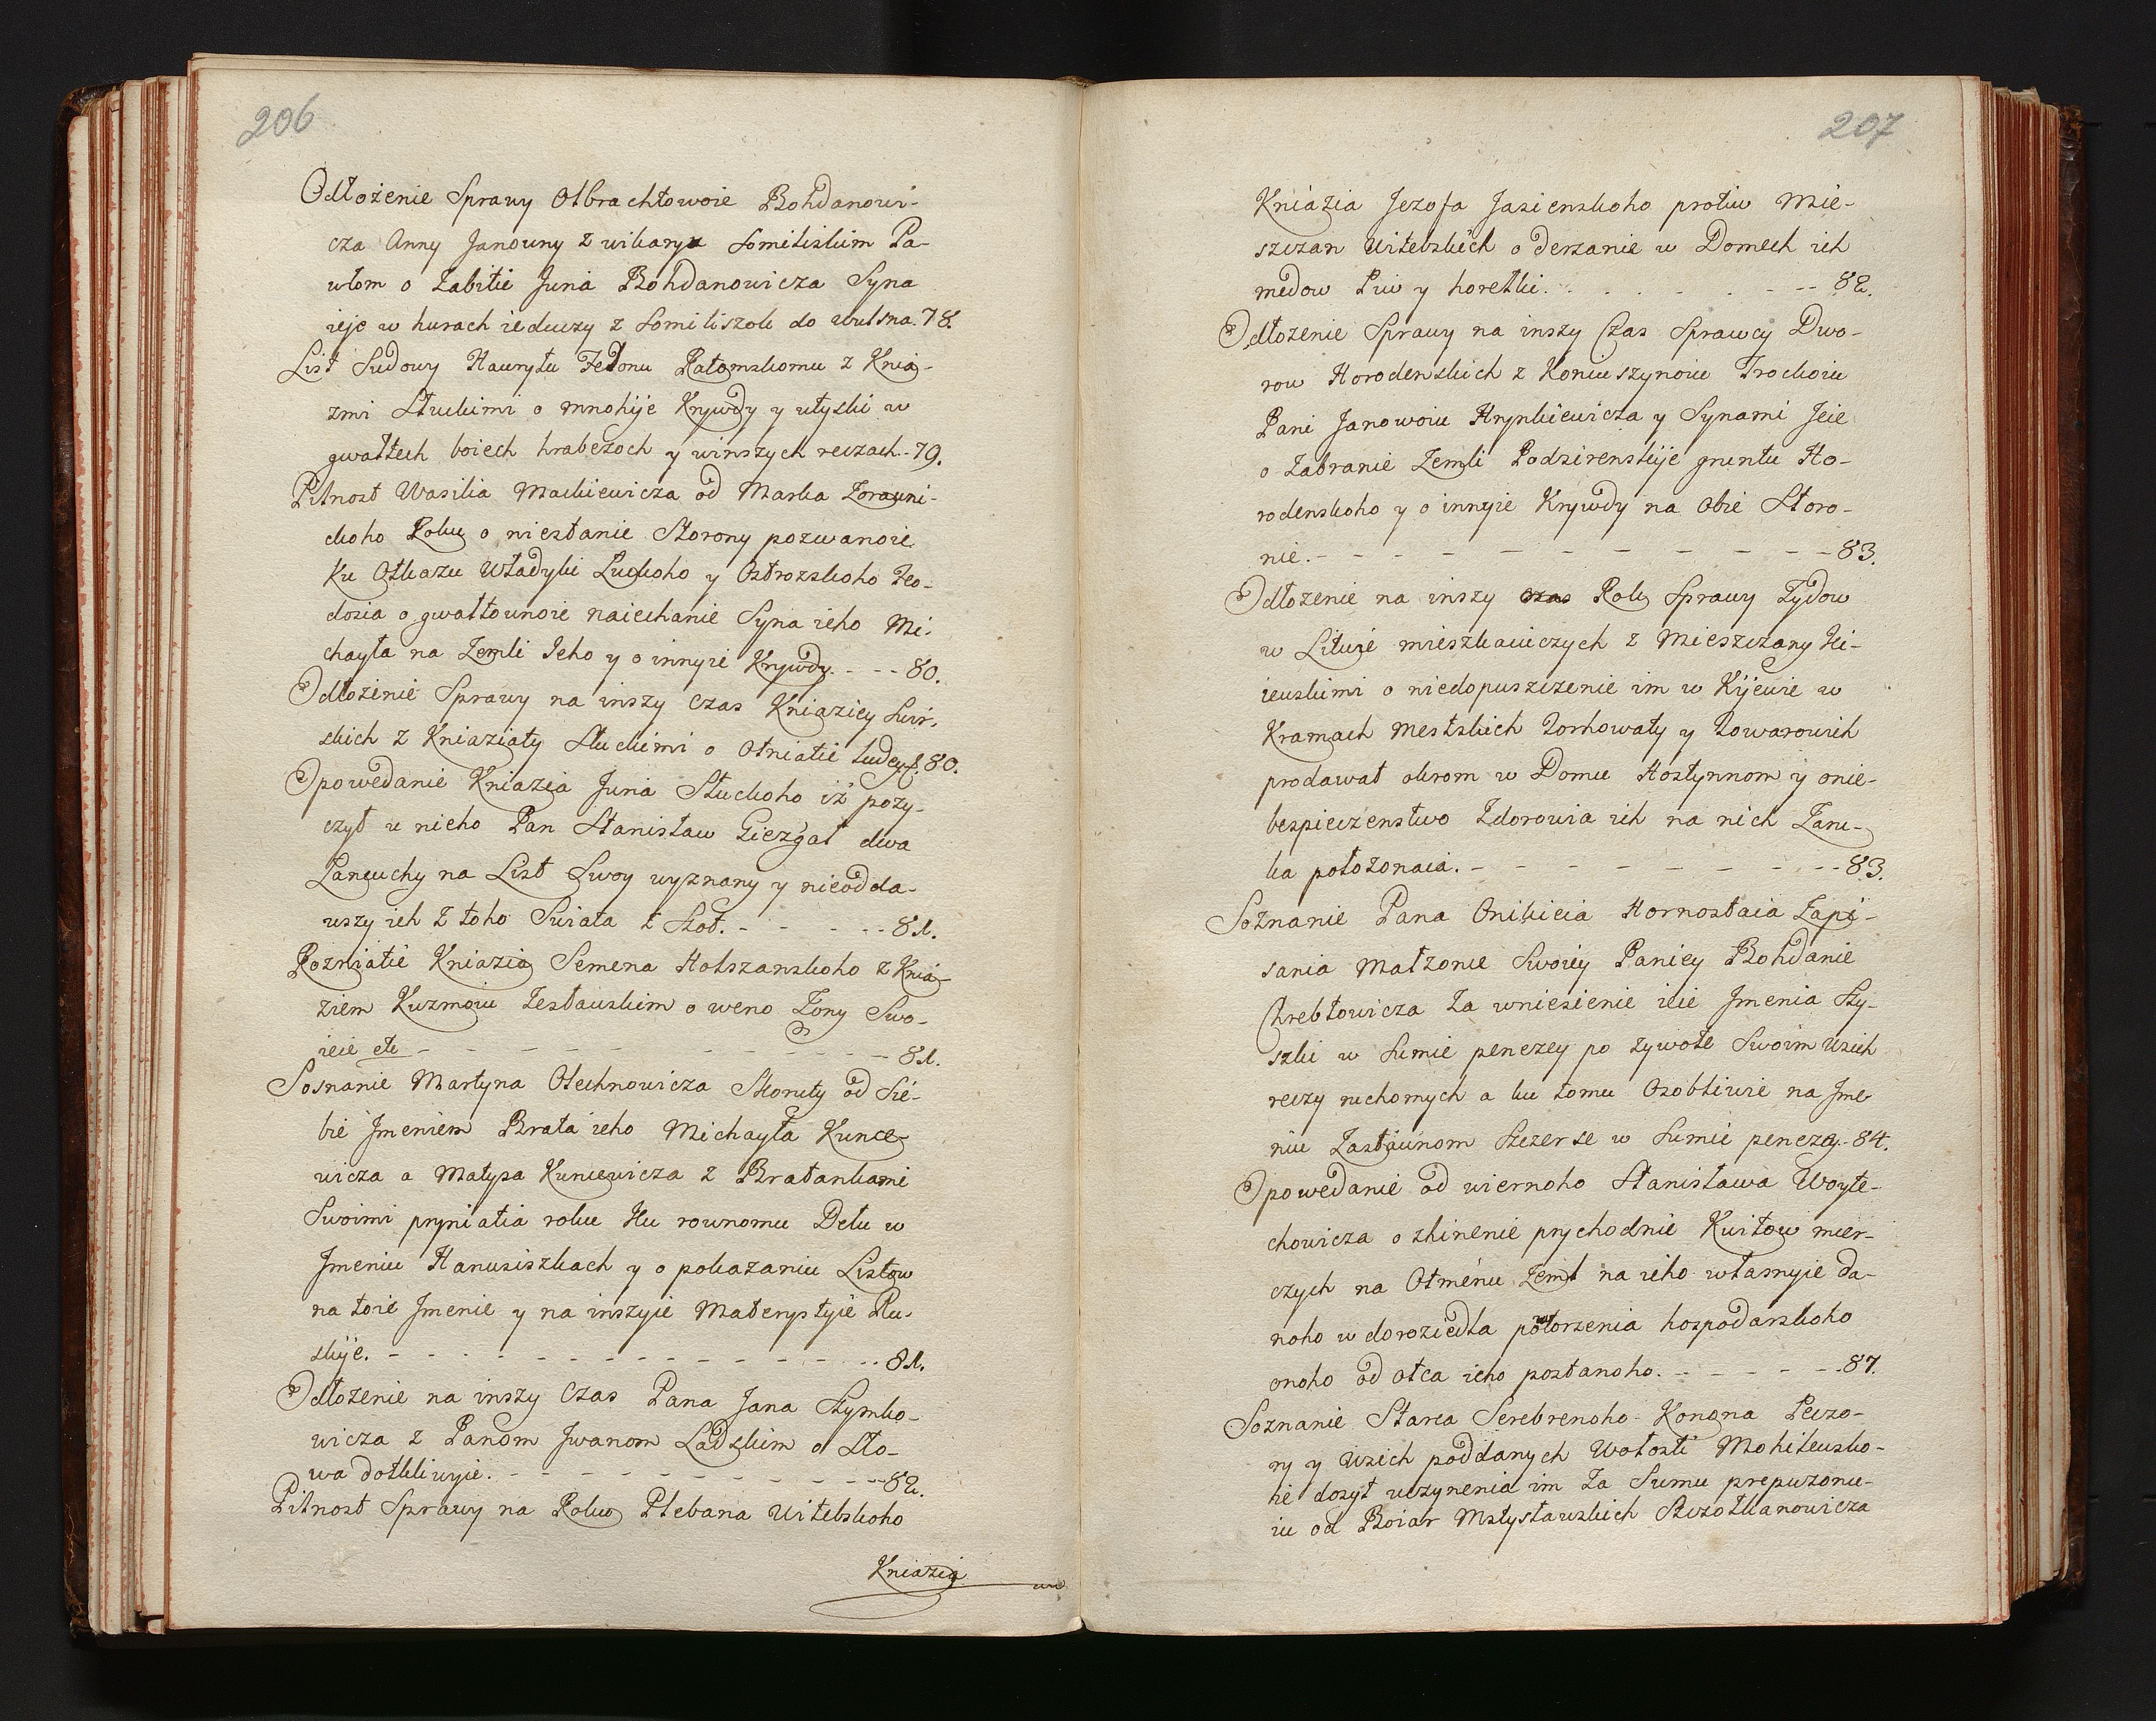 206
Odłożenie Sprawy Olbrachtowoie Bohdanowi-
cza Anny Janowny z wikaryu Somiliskim Pa-
włom o Zabitie Juria Bohdanowicza Syna
ieje w hurach ieduczy z Somiliszok do Wilna. 78.
List Sudowy Hawryłu Fedonu Ratomskomu z Knia-
zmi Słuckimi o mnohije Krywdy y utyski w
gwałtech boiech hrabeżoch y winszych reczach.-79.
Pilnost Wasilia Mackiewicza od Marka Żorawni-
ckoho Roku o niestanie Storony pozwanoie
Ku Otkazu Władyki Łuckoho y Ostrozskoho Feo-
dosia o gwałtownoie naiechanie Syna ieho Mi-
chayła na Zemli Jeho y o innyie Krywdy. - - - 80.
Odłożenie Sprawy na inszy Czas Kniaziey Swir-
skich z Kniaziaty Słuckimi o Otniatie ludey. 80.
Opowedanie Kniazia Juria Słuckoho iż pozy-
czył u nieho Pan Stanisław Giezgał dwa
Łancuchy na List Swoy wyznany y nieodda-
wszy ich z toho Swiata z Szoł. - - - - - 81.
Rozniatie Kniazia Semena Holszanskoho z Knia-
ziem Kuzmoiu Zesławskim o weno Żony Swo-
ieie etc - - - - - - - - - - - 81.
Soznanie Martyna Olechnowicza Skoruty od Sie-
bie Jmeniem Brata ieho Michayła Kunce-
wicza a Matysa Kuncewicza z Bratankami
Swoimi pryniatia roku Ku rownomu Delu w
Jmeniu Hanusiszkach y o pokazaniu Listow
na toie Jmenie y na inszyie Materystyie Ru-
skije. - - - - - - - - - - - - - - 81.
Odłożenie na inszy Czas Pana Jana Szymko-
wicza z Panom Jwanom Ladskim o Sło-
wa dotkliwyie. - - - - - - - - - - - 82.
Pilnost Sprawy na Roku Plebana Witebskoho
Kniazia
207
Kniazia Jezofa Jasienskoho protiw Mie-
szczan Witebskich o derżanie w Domech ich
medow Piw y horełki. - - - - - - - 82.
Odłożenie Sprawy na inszy Czas Sprawcy Dwo-
row Horodenskich z Koniuszynoiu Trockoiu
Pani Janowoiu Hrynkiewicza y Synami Jeie
o Zabranie Zemli Podzirenskije gruntu Ho-
rodenskoho y o innyie Krywdy na obie Storo-
nie. - - - - - - - - - - - - 83.
Odłożenie na inszy czas Rok Sprawy Żydow
w Litwie mieszkaiuczych z Mieszczany Ki-
iewskimi o niedopuszczenie im w Kijewie w
Kramach Mestskich Torhowaty y Towarowich
prodawat okrom w Domu Hostynnom y onie-
bespieczenstwo Zdorowia ich na nich Zaru-
ka położonaia. - - - - - - - - - 83.
Soznanie Pana Onikieia Hornostaia Zapi-
sania Małżonce Swoiey Paniey Bohdanie
Chrebtowicza Za wniesienie ieie Jmenia Szy-
szki w Sumie penezey po Żywote Swoim Wsich
reczy ruchomych a ku tomu Osobliwie na Jme-
niu Zastawnom Szczerse w Sumie penezey.-84.
Opowedanie od wiernoho Stanisława Woyte-
chowicza o zhinenie prychodnie Kwitow mier-
czych na Otmenu Zeml na ieho własnyie da-
noho w doroziedla potworzenia hospodarskoho
onoho od otca ieho posłanoho. - - - - - 87.
Soznanie Starca Serebrenoho Konona Peczo-
ry y Wsich poddanych Wołosti Mohilewsko-
ie dosyt uczynenia im Za Sumu prepuzonu-
iu od Boiar Mstysławskich Szczołkanowicza